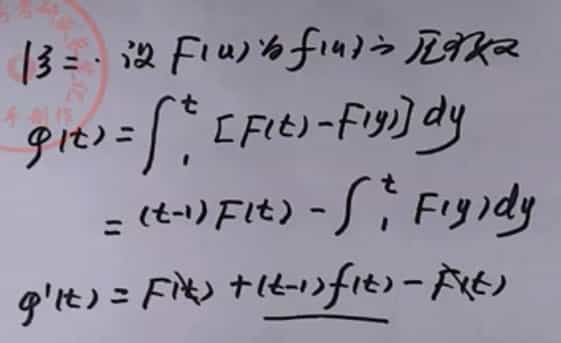 法二:设F(u)为f(u)的原函数
φ(t)=∫₁ᵗ[F(t)-F(y)]dy
=(t-1)F(t)-∫₁ᵗF(y)dy
φ'(t)=F(t)+(t-1)f(t)-F(t)